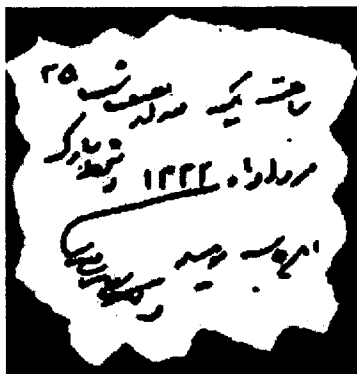 ساعت یک بعد از نصف شب ۲۵
مرداد ماه ۱۳۳۲ دستخط مبارک
اینجانب رسید دکتر